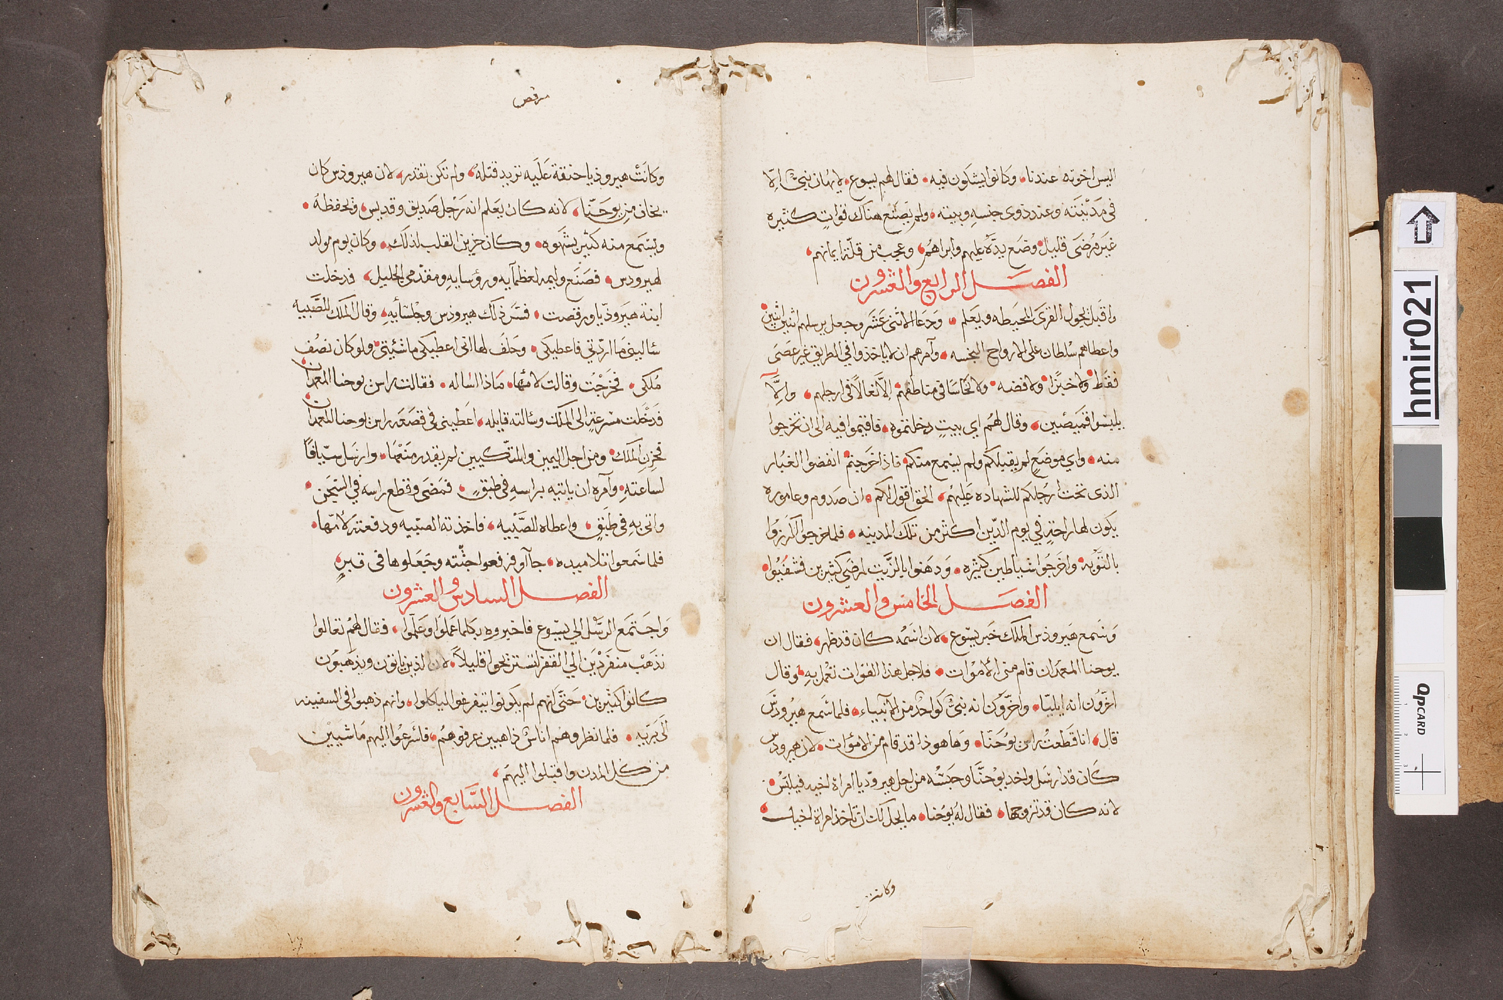 اليس اخوته عندنا، وكانوا يشكون فيه، فقال لهم يسوع، لا يهان نبي الا
في مدينته وعند ذوي جنسه وبيته، ولم يصنع هناك قوات كثيره
غير مرضى قليل وضع يده عليهم وابراهم، وعجب من قلة ايمانهم،
الفصل الرابع والعشرون
واقبل يجول القرى المحيطه ويعلم، ودعا الاثنى عشر وجعل يرسلهم اثنين اثنين
واعطاهم سلطان على الارواح النجسه، وامرهم ان لا ياخذوا في الطريق غير عصى
فقط، ولا خبزا، ولا فضه، ولا نحاسا في مناطقهم، الا نعالا في ارجلهم، والا
يلبسوا قميصين، وقال لهم اي بيت دخلتموه، فاقيموا فيه الى ان تخرجوا
منه، واي موضع لم يقبلكم ولم يسمع منكم، فاذا خرجتم انفضوا الغبار
الذى تحت ارجلكم للشهاده عليهم، الحق اقول لكم، ان صدوم وعاموره
يكون لها راحه في يوم الدين اكثر من تلك المدينه، فلما خرجوا كرزوا
بالتوبه، واخرجوا شياطين كثيره، ودهنوا بالزيت مرضى كثيرين فشفيوا،
الفصل الخامس والعشرون
وسمع هيرودس الملك خبر يسوع، لان اسمه كان قد ظهر، فقال ان
يوحنا المعمدان قام من الاموات، فلاجل هذا القوات تعمل به، وقال
اخرون انه ايليا، واخرون انه نبي كواحد من الانبياء، فلما سمع هيرودس
قال، انا قطعت راس يوحنا، وها هوذا قد قام من الاموات، لان هيرودس
كان قد ارسل واخد يوحنا وحبسه من اجل هيروديا امراة اخيه فيلبس،
لانه كان قد تزوجها، فقال له يوحنا، ما يحل لك ان تاخذ امراة اخيك
وكانت
مرقص
وكانت هيروديا حنقة عليه تريد قتله، ولم تكن تقدر، لان هيرودس كان
يخاف من يوحنا، لانه كان يعلم انه رجل صديق وقديس، ويحفظه،
ويسمع منه كثير بشهوه، وكان حزين القلب لذلك، وكان يوم مولد
لهيرودس، فصنع وليمه لعظمايه ورؤسايه ومقدمي الجليل، فدخلت
ابنة هيروديا ورقصت، فسر ذلك هيرودس وجلسايه، وقال الملك للصبيه
سالينى ما اردتي فاعطيكى، وحلف لها اني اعطيكي ما شئتي، ولو كان نصف
ملكى، فخرجت وقالت لامها، ماذا اساله، فقالت راس يوحنا المعمدان
فدخلت مسرعة الى الملك وسالته قايله، اعطينى في قصعة راس يوحنا المعمدان
فحزن الملك، ومن اجل اليمين والمتكيين لم يقدر منعها، وارسل سيافا
لساعته، وامره ان ياتيه براسه في طبق، فمضى وقطع راسه في السجن،
واتى به في طبق، واعطاه للصبيه، فاخذته الصبيه ودفعته لامها،
فلما سمعوا تلاميده، جآوا فرفعوا جثته وجعلوها فى قبر
الفصل السادس والعشرون
واجتمع الرسل الى يسوع فاخبروه بكلما عملوا وعلموا، فقال لهم تعالوا
نذهب منفردين الى القفر لنستريحوا قليلا، لان الذين ياتون ويذهبون
كانوا كثيرين، حتى انهم لم يكونوا يتفرغوا لياكلوا، وانهم ذهبوا في السفينه
الى بريه، فلما نظروهم اناس ذاهبين عرفوهم، فاسرعوا اليهم ماشيين
من كل المدن واقبلوا اليهم،
الفصل السابع والعشرون
hmir021
QPCARD